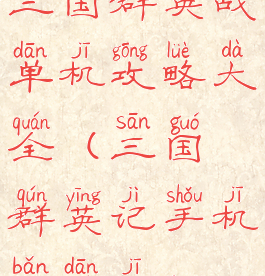 三国群英战
dān jī gōng lüè dà
单机攻略大
quán sān guó
全(三国
qún yīng jì shǒu jī
群英记手机
bǎn dān jī